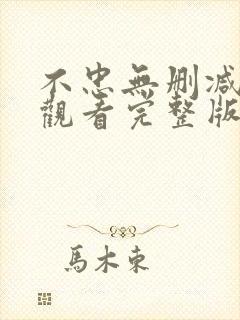 不忠無刪減
觀看完整版
馬木東